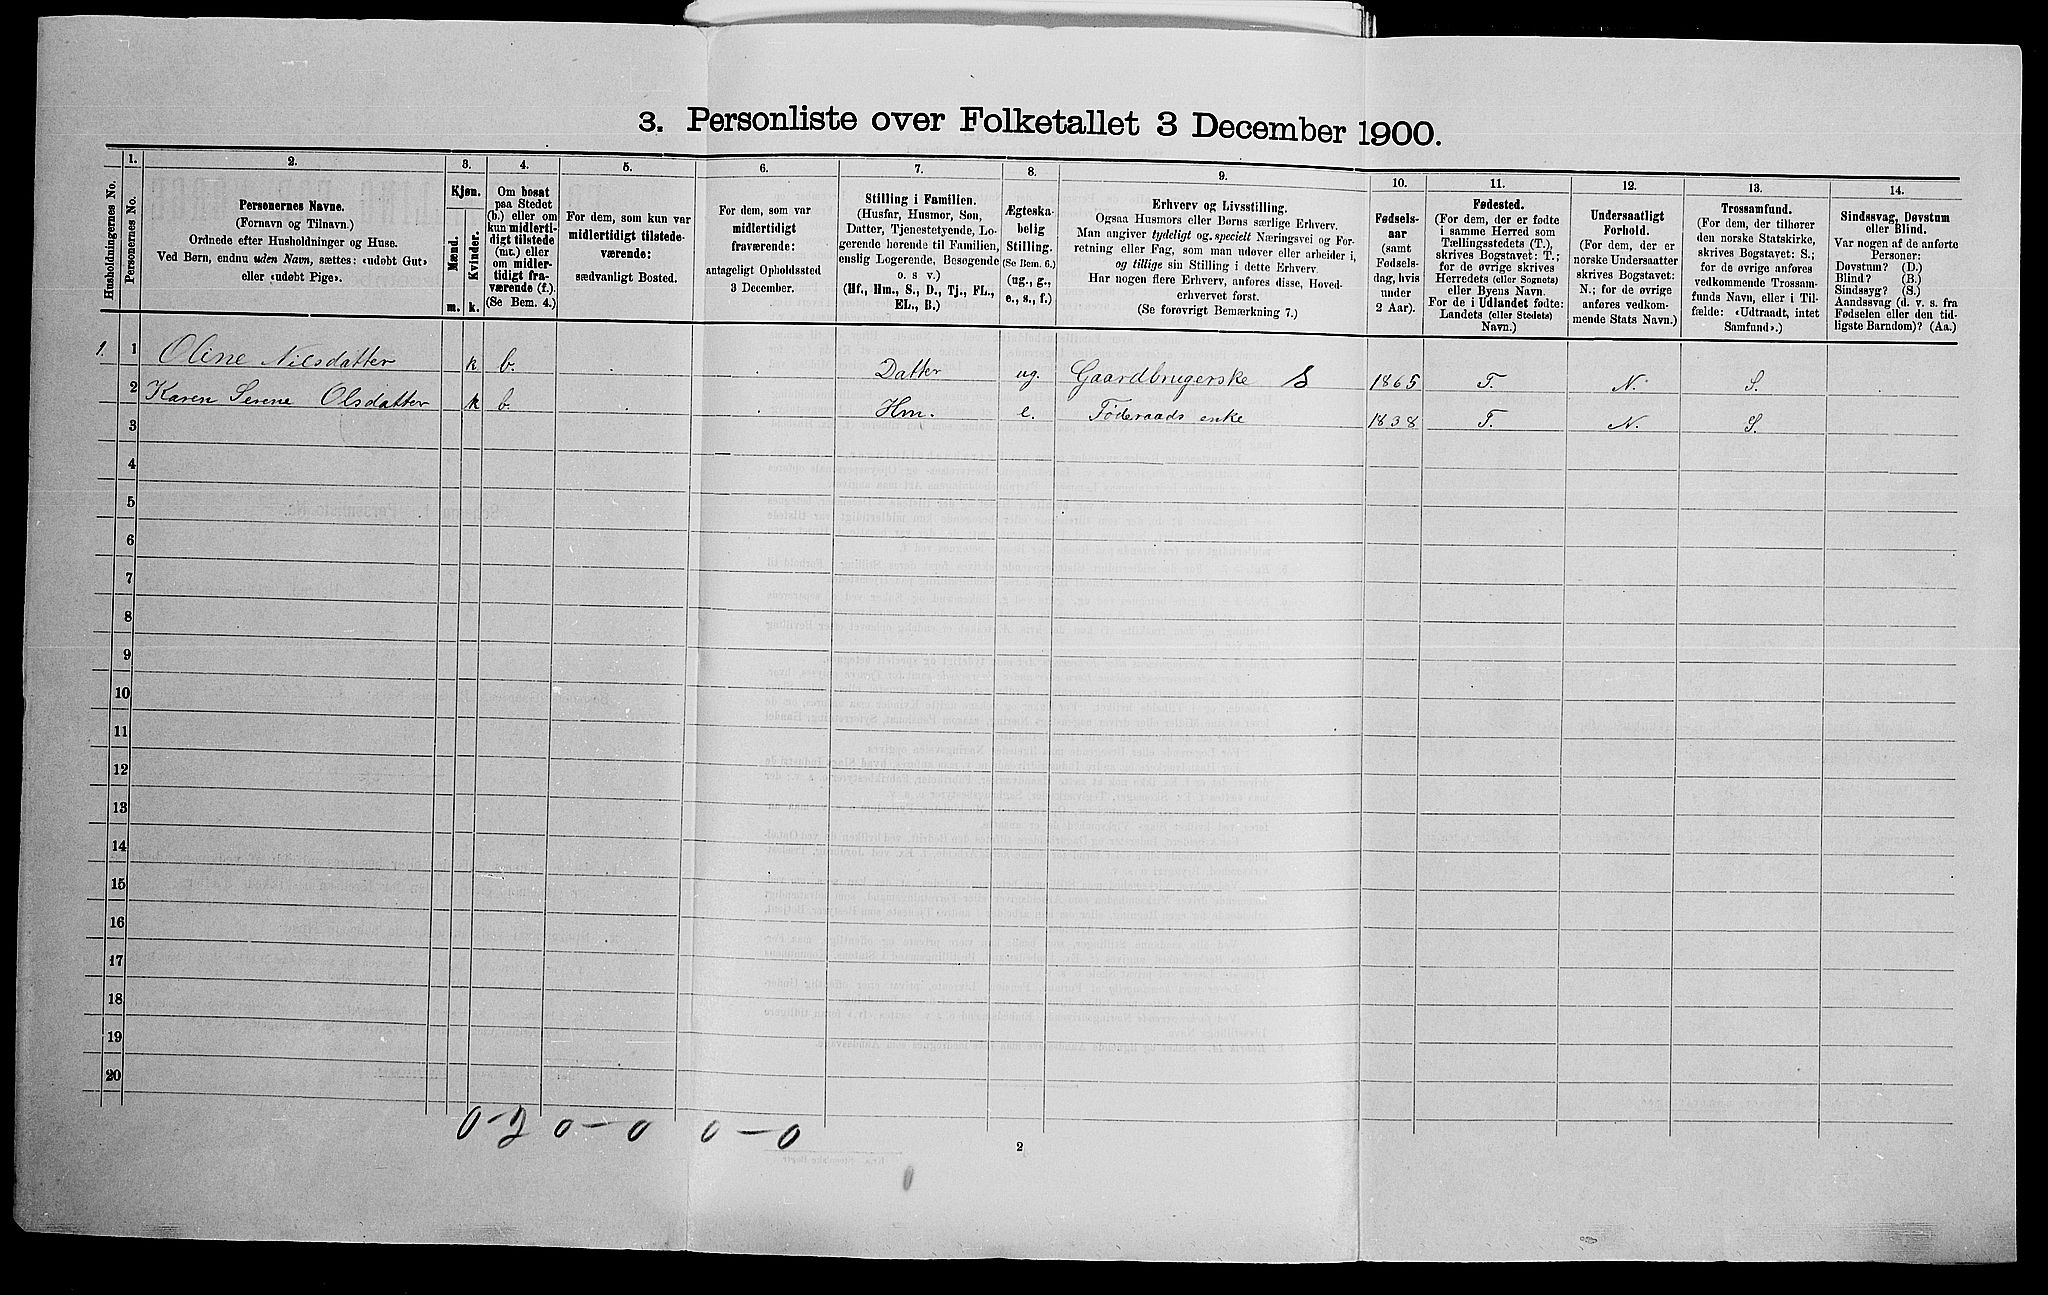 3. Personliste over Folketallet 3 December 1900.
1. 2. 3. 4. 5. 6. 7. 8. 9. 10. 11. 12. 13. 14.
Husholdningernes No.
Personernes No.
Personernes Navne.
(Fornavn og Tilnavn.)
Ordnede efter Husholdninger og Huse.
Ved Børn, endnu uden Navn, sættes: «udøbt Gut»
eller «udøbt Pige».
Kjøn.
Mænd.
Kvinder.
m. k.
Om bosat
paa Stedet
(b.) eller om
kun midlerti-
digt tilstede
(mt.) eller
om midler-
tidigt fra-
værende (f.).
(Se Bem. 4.)
For dem, som kun var
midlertidigt tilstede-
værende:
sædvanligt Bosted.
For dem, som var
midlertidigt
fraværende:
antageligt Opholdssted
3 December.
Stilling i Familien.
(Husfar, Husmor, Søn,
Datter, Tjenestetyende, Lo-
gerende hørende til Familien,
enslig Logerende, Besøgende
o. s v.)
(Hf., Hm., S., D., Tj., FL.,
EL., B.)
Ægteska-
belig
Stilling.
(Se Bem. 6.)
(ug., g.,
e., s., f.)
Erhverv og Livsstilling.
Ogsaa Husmors eller Børns særlige Erhverv.
Man angiver tydeligt og specielt Næringsvei og For-
retning eller Fag, som man udøver eller arbeider i,
og tillige sin Stilling i dette Erhverv.
Har nogen flere Erhverv, anføres disse, Hoved-
erhvervet først.
(Se forøvrigt Bemærkning 7.)
Fødsels-
aar
(samt
Fødsels-
dag, hvis
under
2 Aar).
Fødested.
(For dem, der er fødte
i samme Herred som
Tællingsstedets (T.),
skrives Bogstavet: T.;
for de øvrige skrives
Herredets (eller Sognets)
eller Byens Navn.
For de i Udlandet fødte:
Landets (eller Stedets)
Navn.)
Undersaatligt
Forhold.
(For dem, der er
norske Undersaatter
skrives Bogstavet:
N.; for de øvrige
anføres vedkom-
mende Stats Navn.)
Trossamfund.
(For dem, der tilhører
den norske Statskirke,
skrives Bogstavet: S.;
for de øvrige anføres
vedkommende Trossam-
funds Navn, eller i Til-
fælde: «Udtraadt, intet
Samfund».)
Sindssvag, Døvstum
eller Blind.
Var nogen af de anførte
Personer:
Døvstum? (D.)
Blind? (B.)
Sindssyg? (S.)
Aandssvag (d. v. s. fra
Fødselen eller den tid-
ligste Barndom)? (Aa.)
1. 1 Oline Nilsdatter k b. Datter ug. Gaardbrugerske S 1865 T. N. S.
2 Karen Serene Olsdatter k b. Hm. e. Føderaads enke 1838 T. N. S.
3
4
5
6
7
8
9
10
11
12
13
14
15
16
17
18
19
20
0-2 0-0 0-0
2
0